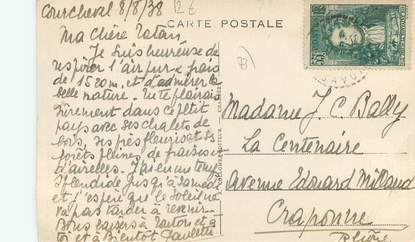 Courchevel 8/8/38
CARTE POSTALE
Ma chère Tatan
Je suis heureuse de
respirer l'air pur et frais
de 1520m. et d'admirer la
belle nature. Tu te plairais
sûrement dans ce petit
pays avec ses chalets de
bois, ses prés fleuris et ses
forêts pleines de fraises ou
d'airelles. J'ai eu un temps
splendide jusqu'à samedi
et j'espère que le soleil ne
va pas tarder à revenir.
Bons baisers à Tonton et à
toi et à Bientôt Paulette
Madame J. C. Bally
La Centenaire
avenue Edouard Millaud
Craponne
Rhône